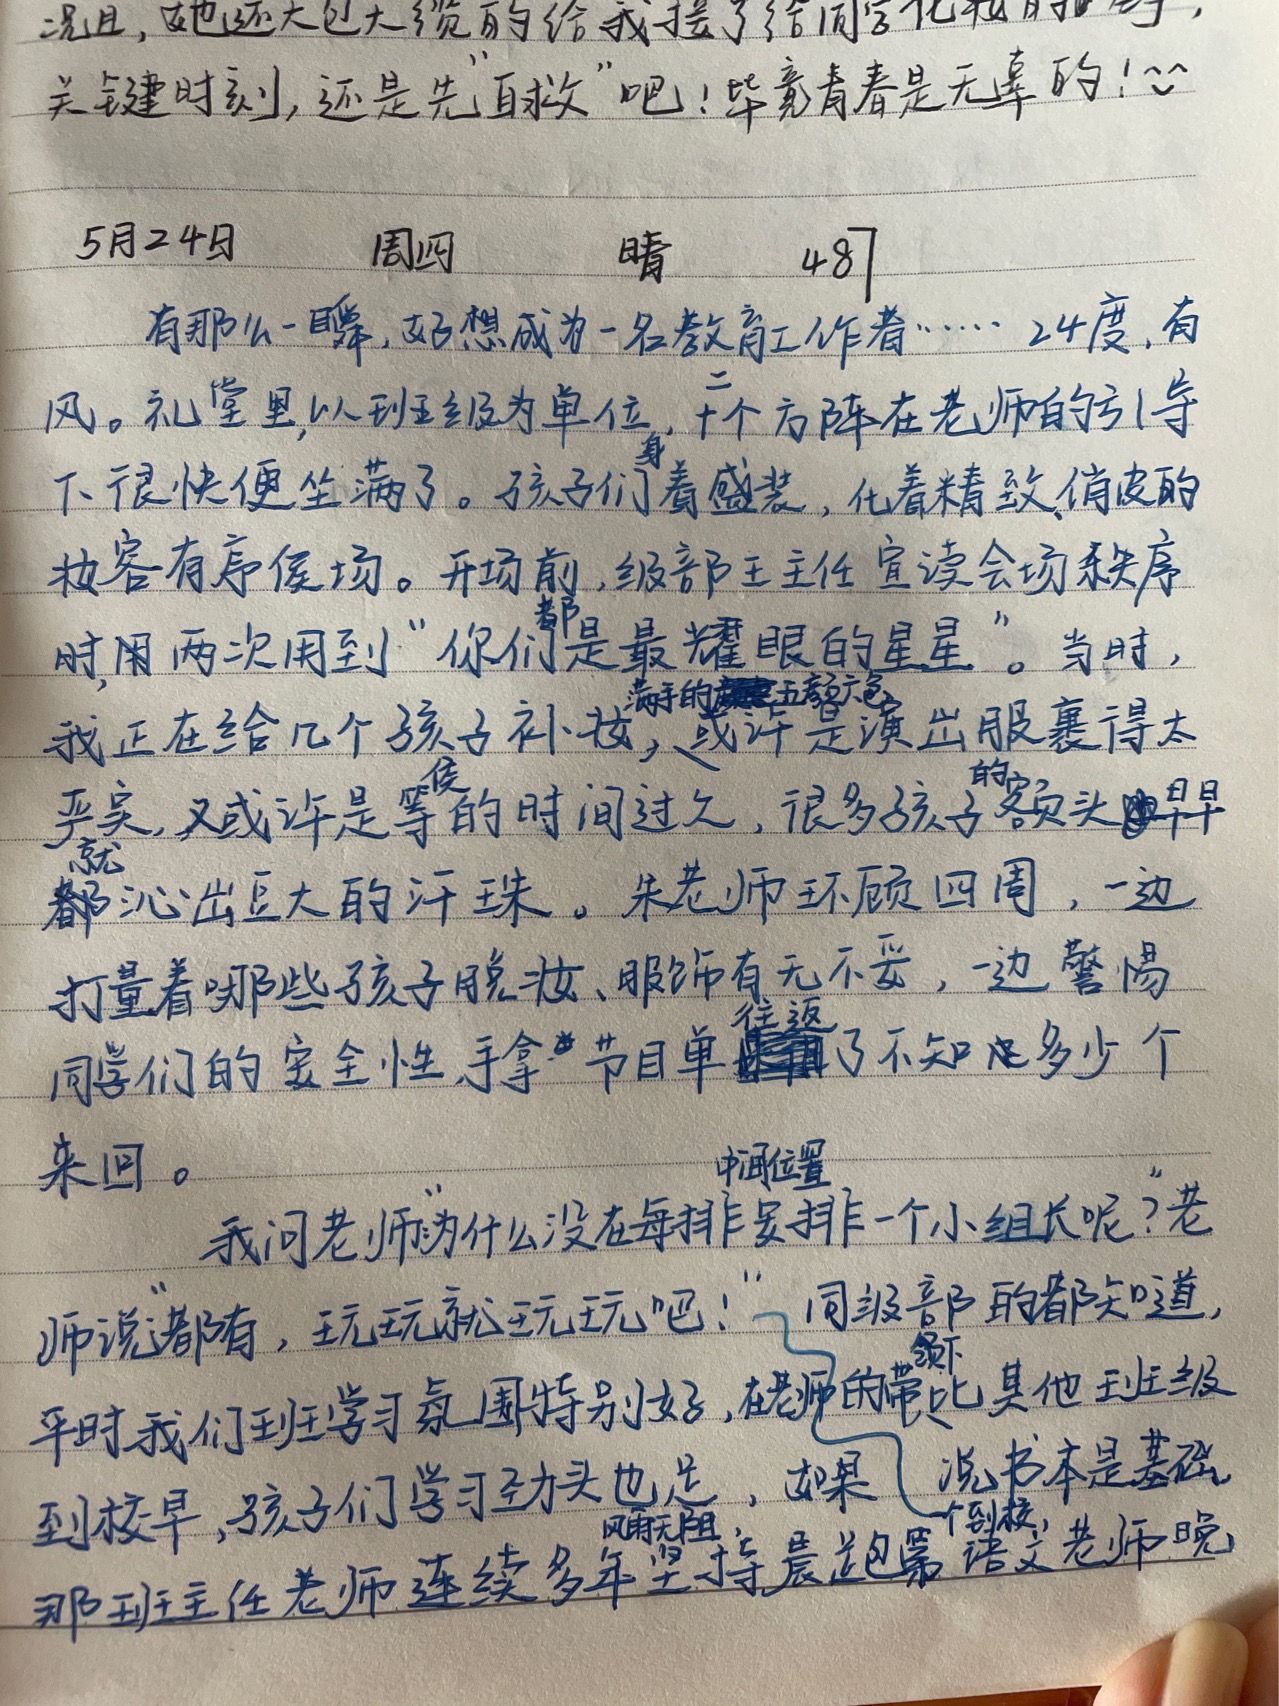 况且,她还大包大缆的给我接了给同学化妆的
关键时刻,还是先“自救”吧!毕竟青春是无辜的!
5月24日 周四 晴 487
有那么一瞬,好想成为一名教育工作者…… 24度,有
风。礼堂里,以班级为单位,二十个方阵在老师的引导
下很快便坐满了。孩子们身着盛装,化着精致、俏皮的
妆容有序侯场。开场前,级部王主任宣读会场秩序
时,用两次用到“你们都是最耀眼的星星”。当时,
我正在给几个孩子补妆,满手的五颜六色,或许是演出服裹得太
严实,又或许是等侯的时间过久,很多孩子的额头早早
就都沁出豆大的汗珠。朱老师环顾四周,一边
打量着哪些孩子脱妆、服饰有无不妥,一边警惕
同学们的安全性,手拿节目单往返了不知多少个
来回。
我问老师“为什么没在每排中间位置安排一个小组长呢?”老
师说:“都有,玩玩就玩玩吧!” 同级部的都知道,
平时我们班学习氛围特别好,在老师的带领下比其他班级
到校早,孩子们学习劲头也足,如果 说书本是基础,
那班主任老师连续多年风雨无阻,坚持晨跑第个到校,语文老师晚